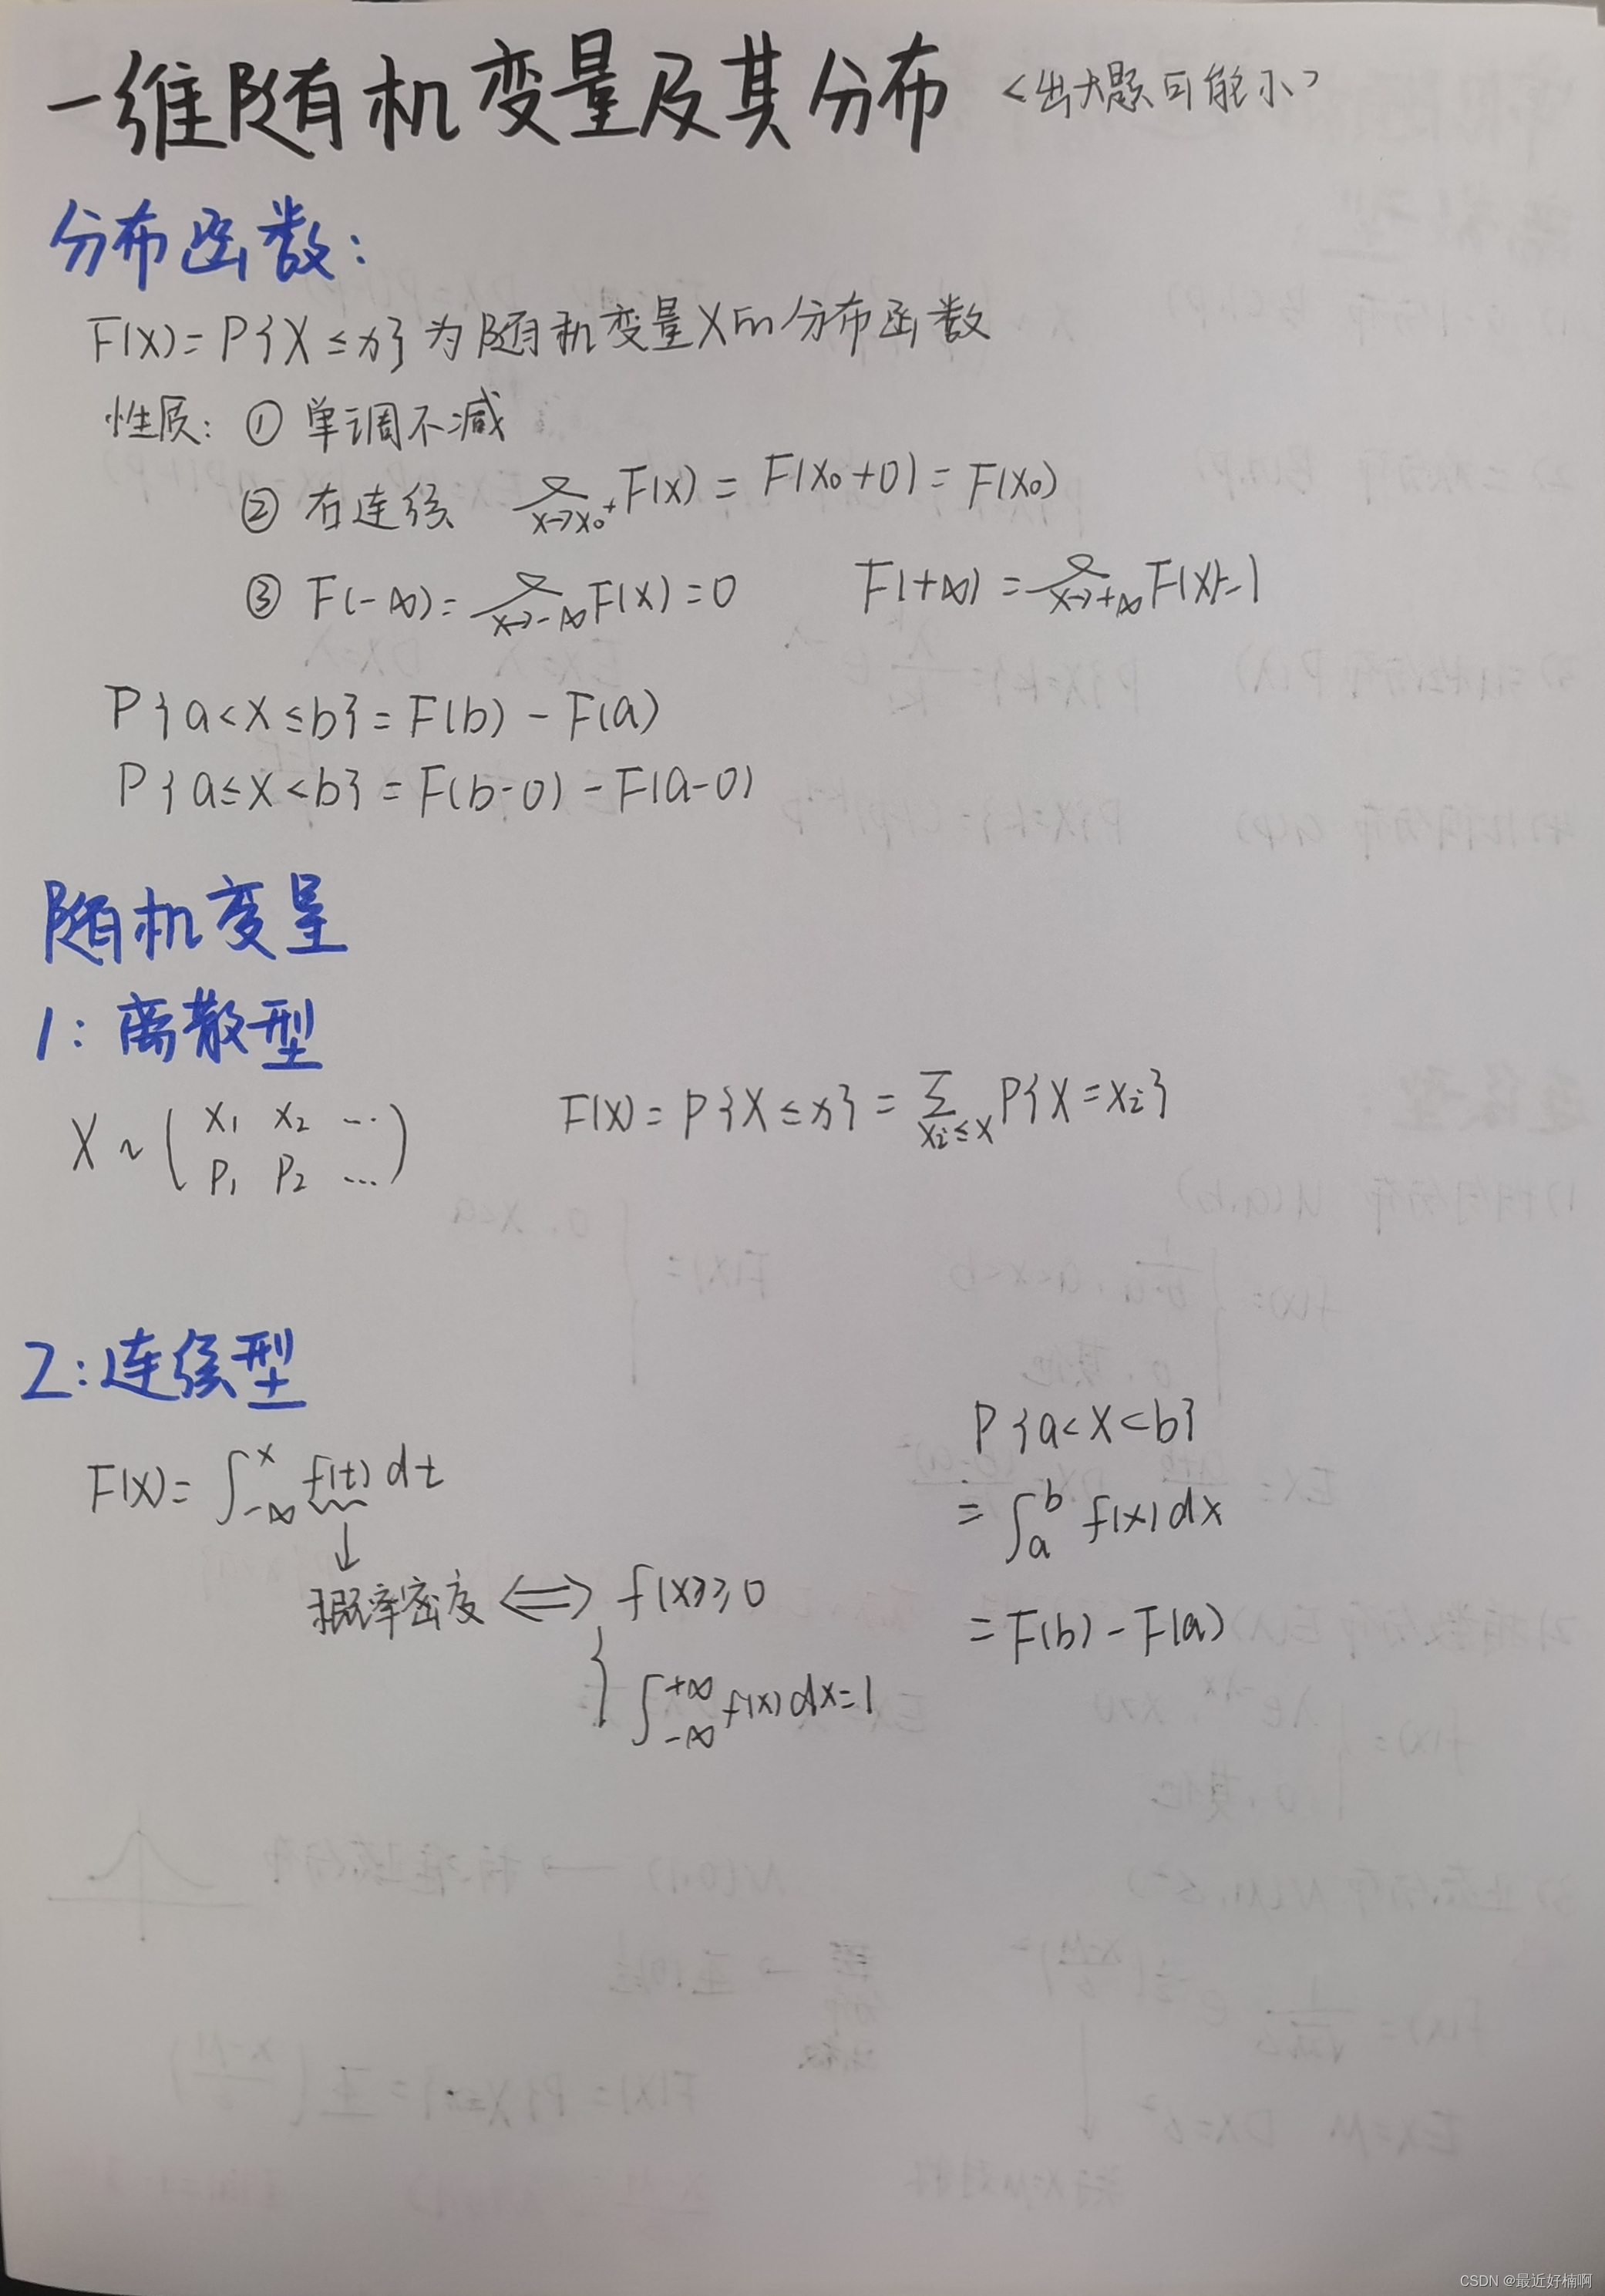 一维随机变量及其分布 <出大题可能小>
分布函数:
F(x)=P{X≤x}为随机变量X的分布函数
性质: ① 单调不减
② 右连续 lim x→x₀⁺ F(x) = F(x₀+0) = F(x₀)
③ F(-∞)= lim x→-∞ F(x)=0 F(+∞)= lim x→+∞ F(x)=1
P{a<X≤b}=F(b)-F(a)
P{a≤X<b}=F(b-0)-F(a-0)
随机变量
1: 离散型
X~( x₁ x₂ … F(x)=P{X≤x}=∑ xᵢ≤x P{X=xᵢ}
p₁ p₂ … )
2:连续型
P{a<X<b}
F(x)=∫_{-∞}^{x} f(t) dt
=∫_{a}^{b} f(x)dx
↓
概率密度 ⟺ { f(x)≥0
=F(b)-F(a)
∫_{-∞}^{+∞} f(x)dx=1
CSDN @最近好楠啊